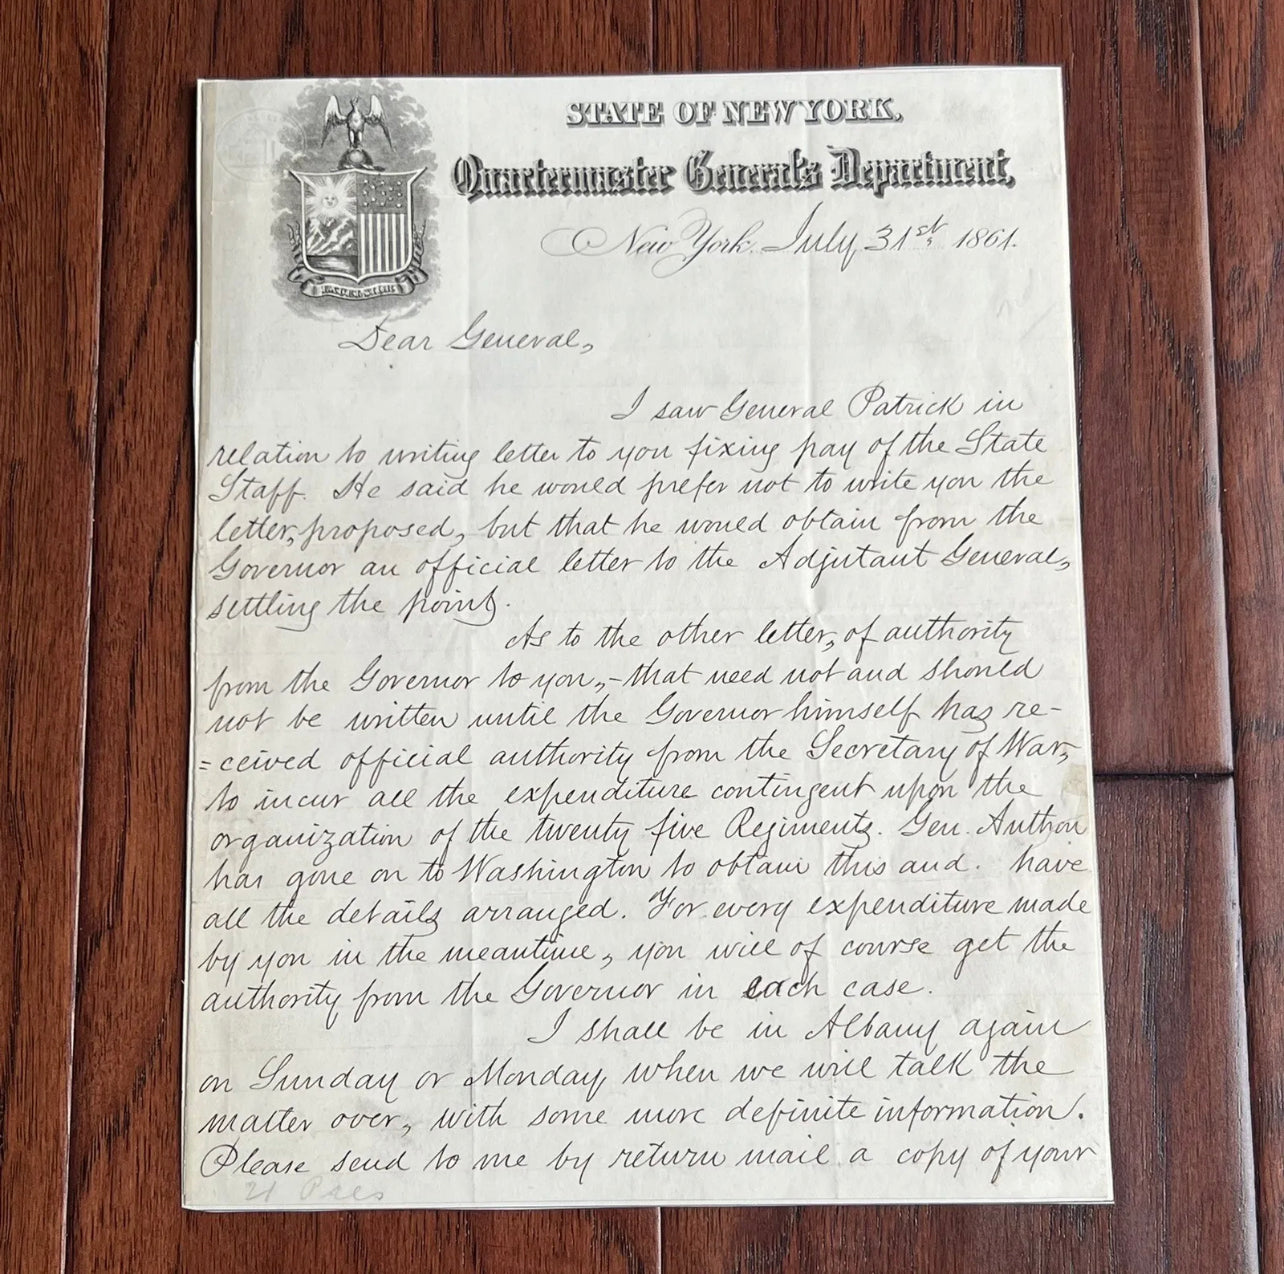 STATE OF NEW YORK,
Quartermaster General's Department,
New York. July 31st, 1861.
Dear General,
I saw General Patrick in
relation to writing letter to you fixing pay of the State
Staff. He said he would prefer not to write you the
letter, proposed, but that he would obtain from the
Governor an official letter to the Adjutant General,
settling the point.
As to the other letter, of authority
from the Governor to you,- that need not and should
not be written until the Governor himself has re-
=ceived official authority from the Secretary of War,
to incur all the expenditure contingent upon the
organization of the twenty five Regiments. Gen. Anthon
has gone on to Washington to obtain this and. have
all the details arranged. For every expenditure made
by you in the meantime, you will of course get the
authority from the Governor in each case.
I shall be in Albany again
on Sunday or Monday, when we will talk the
matter over, with some more definite information.
Please send to me by return mail a copy of your